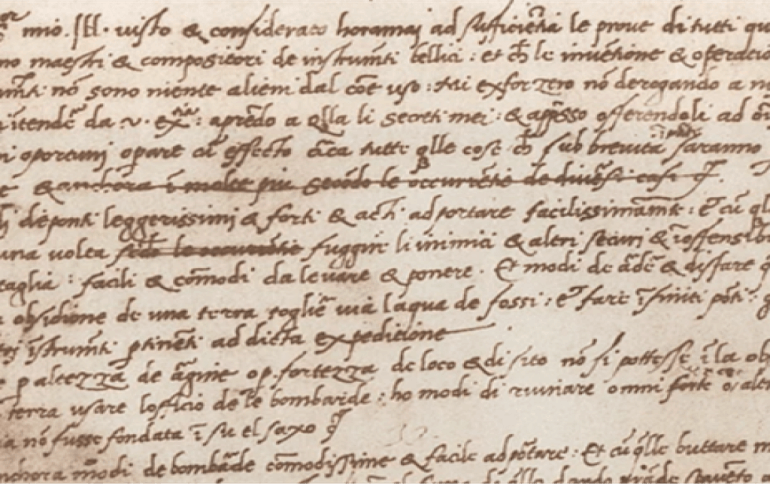 S.or mio. Ill. visto & considerato horamai ad sufficientia le prove di tutti qu
no maestri & compositori de instrumti bellici: et ch le inventione & operatio
umti nō sono niente alieni dal cōe uso: Mi exforzero nō derogando a n
intendē da v. ex.tia: aprēdo a qlla li secreti mei: & appsso offerendoli ad ō
i oportuni opare cū effecto circa tutte qlle cose, ch sub brevità saranno
e & anchora ī molte piu secōdo le occurrentie de diversi casi
di deponti leggerissimi & forti & acti ad portare facilissimamte: Et cū ql
una volta secōdo le occurrentie fuggire li inimici & altri securi & īoffensib
taglia: facili & cōmodi da levare & ponere. Et modi de arde & disfare q
obsidione de una terra toglier via laqua de fossi: Et fare īfiniti pōti: g
tri īstrumti ptinenti ad dicta expeditione
p altezza de argine op. fortezza de loco & di sito nō si pottesse ī la ob
terra usare lofficio de le bombarde: ho modi di ruinare omni forte altr
a nō fusse fondata ī su el saxo
nchora modi de bombarde cōmodissime & facile ad portare: Et cū qlle buttare m
dando grāde spavento